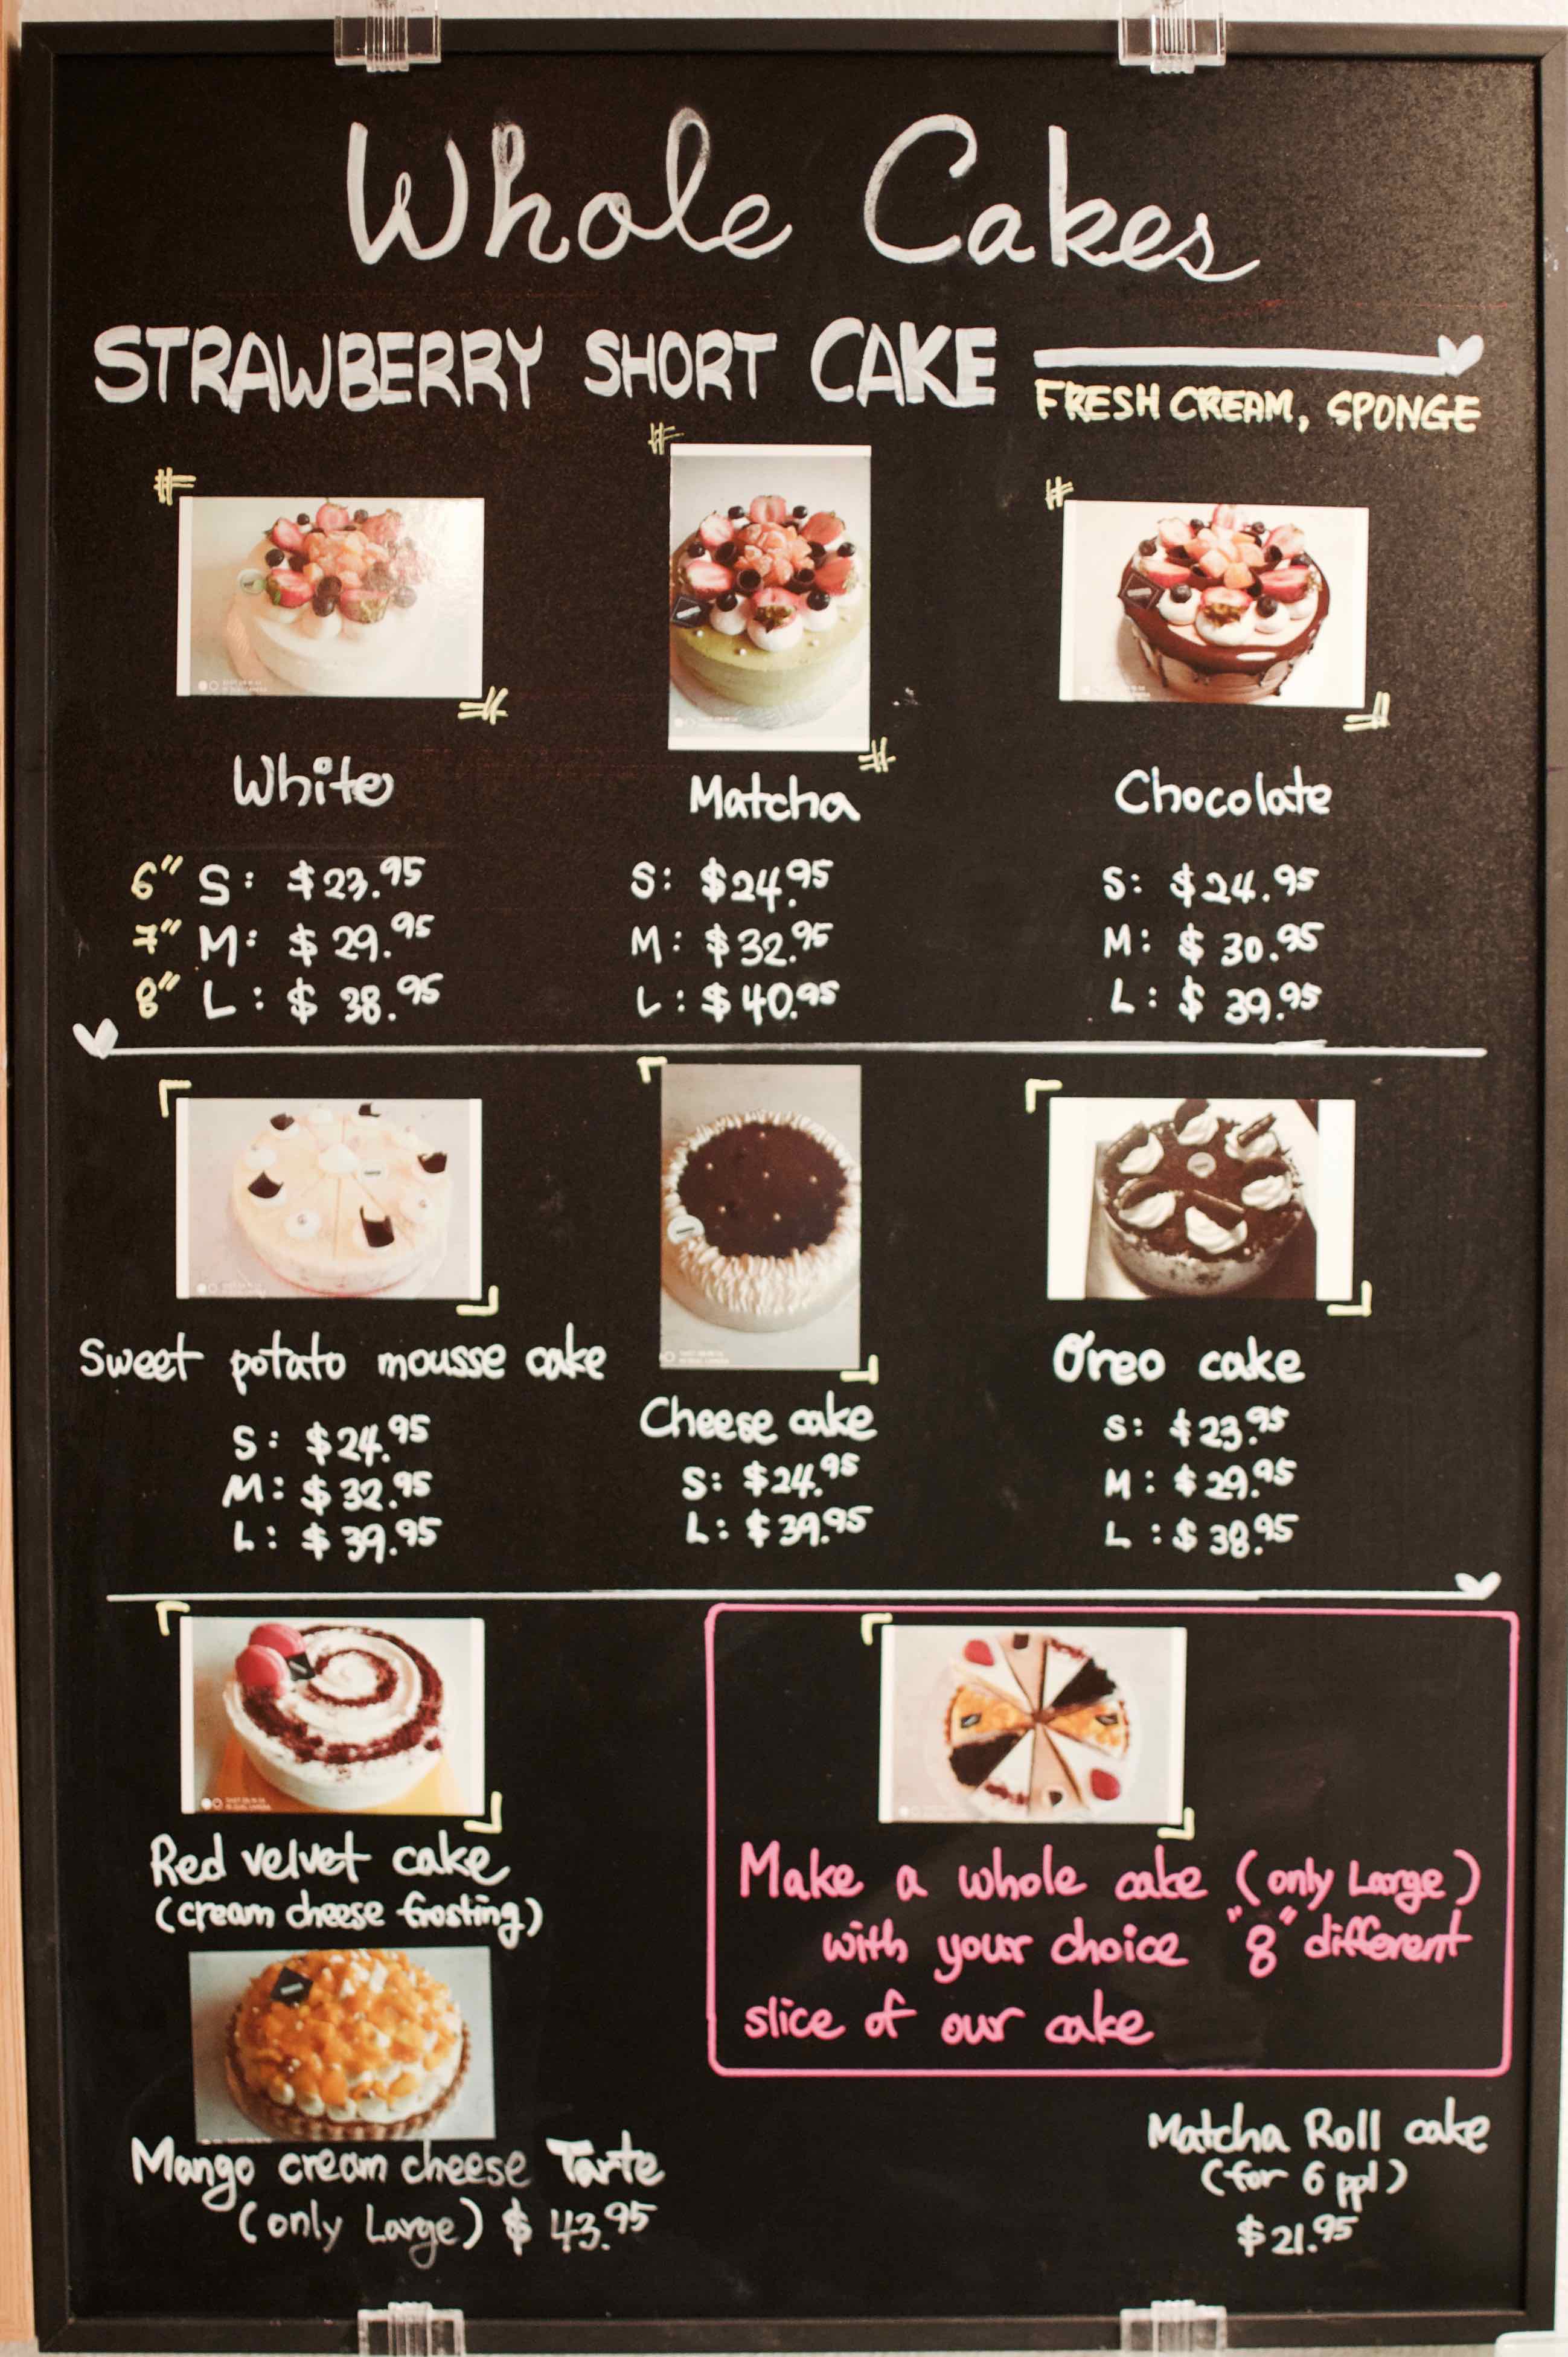 Whole Cakes
STRAWBERRY SHORT CAKE
FRESH CREAM, SPONGE
White
6" S: $23.95
7" M: $29.95
8" L: $38.95
Matcha
S: $24.95
M: $32.95
L: $40.95
Chocolate
S: $24.95
M: $30.95
L: $39.95
Sweet potato mousse cake
S: $24.95
M: $32.95
L: $39.95
Cheese cake
S: $24.95
L: $39.95
Oreo cake
S: $23.95
M: $29.95
L: $38.95
Red velvet cake
(cream cheese frosting)
Mango cream cheese Tarte
(only Large) $43.95
Make a whole cake (only Large)
with your choice "8" different
slice of our cake
Matcha Roll cake
(for 6 ppl)
$21.95